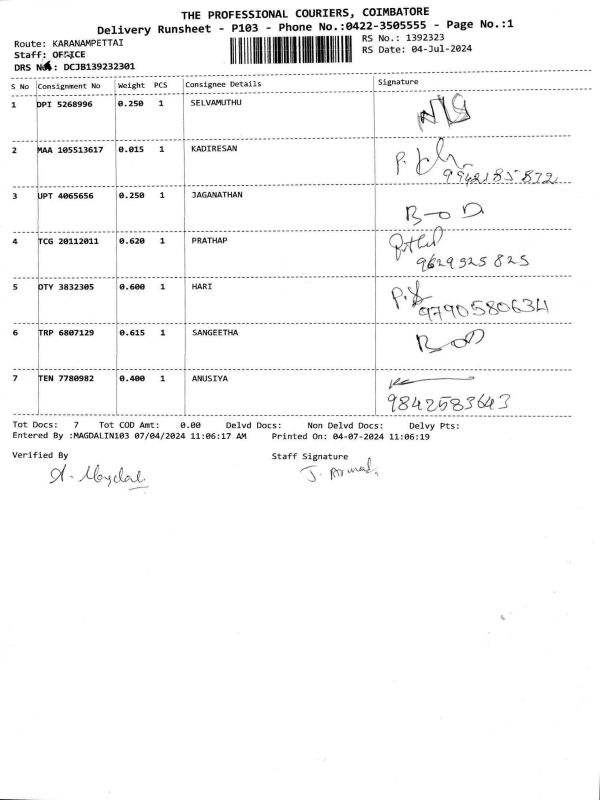 THE PROFESSIONAL COURIERS, COIMBATORE
Delivery Runsheet - P103 - Phone No.:0422-3505555 - Page No.:1
Route: KARANAMPETTAI
RS No.: 1392323
Staff: OFFICE
RS Date: 04-Jul-2024
DRS No.: DCJB139232301
S No Consignment No Weight PCS Consignee Details Signature
1 DPI 5268996 0.250 1 SELVAMUTHU N/S
2 MAA 105513617 0.015 1 KADIRESAN
9942185872
3 UPT 4065656 0.250 1 JAGANATHAN
B-oD
4 TCG 20112011 0.620 1 PRATHAP
9629325825
5 OTY 3832305 0.600 1 HARI
9790580634
6 TRP 6807129 0.615 1 SANGEETHA
BoD
7 TEN 7780982 0.400 1 ANUSIYA
9842583643
Tot Docs: 7 Tot COD Amt: 0.00 Delvd Docs: Non Delvd Docs: Delvy Pts:
Entered By :MAGDALIN103 07/04/2024 11:06:17 AM Printed On: 04-07-2024 11:06:19
Verified By Staff Signature